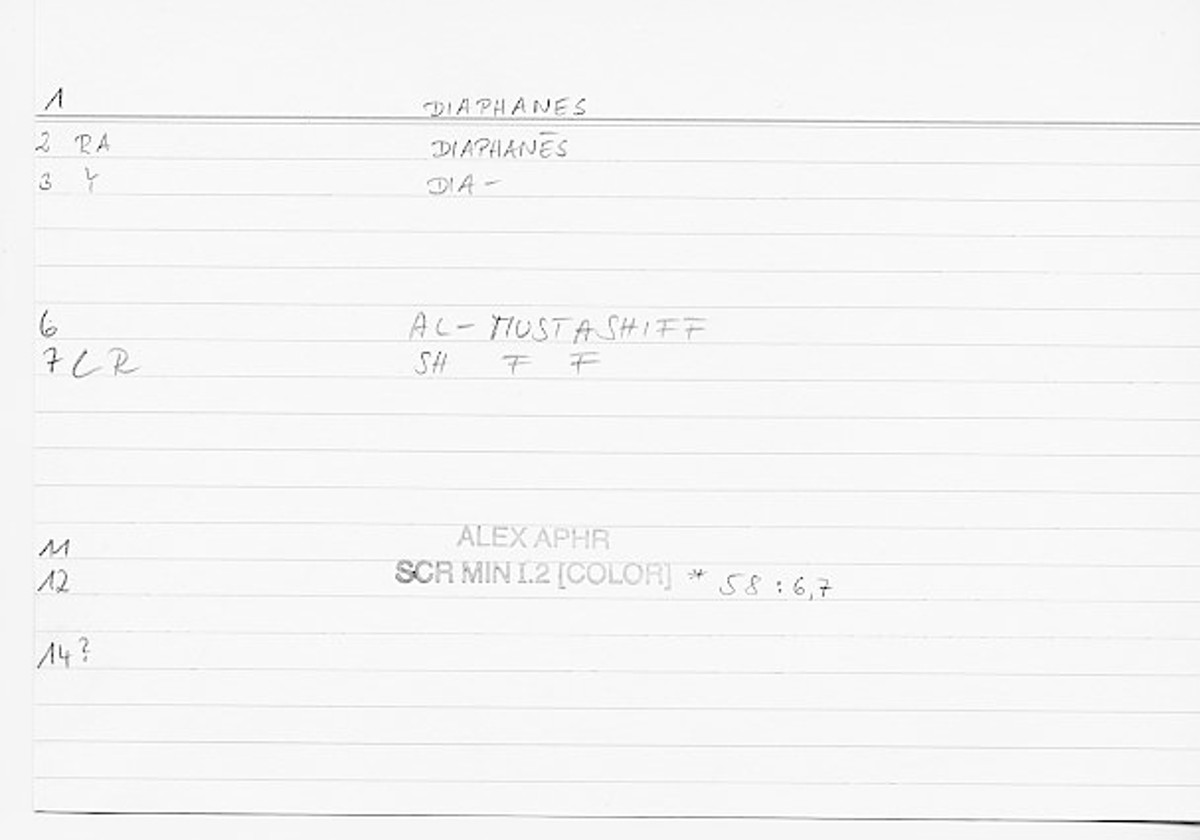 1 DIAPHANES
2 RA DIAPHANĒS
3 Y DIA-
6 AL-MUSTASHIFF
7 CR SH F F
11 ALEX APHR
12 SCR MIN I.2 [COLOR] * 58:6,7
14?